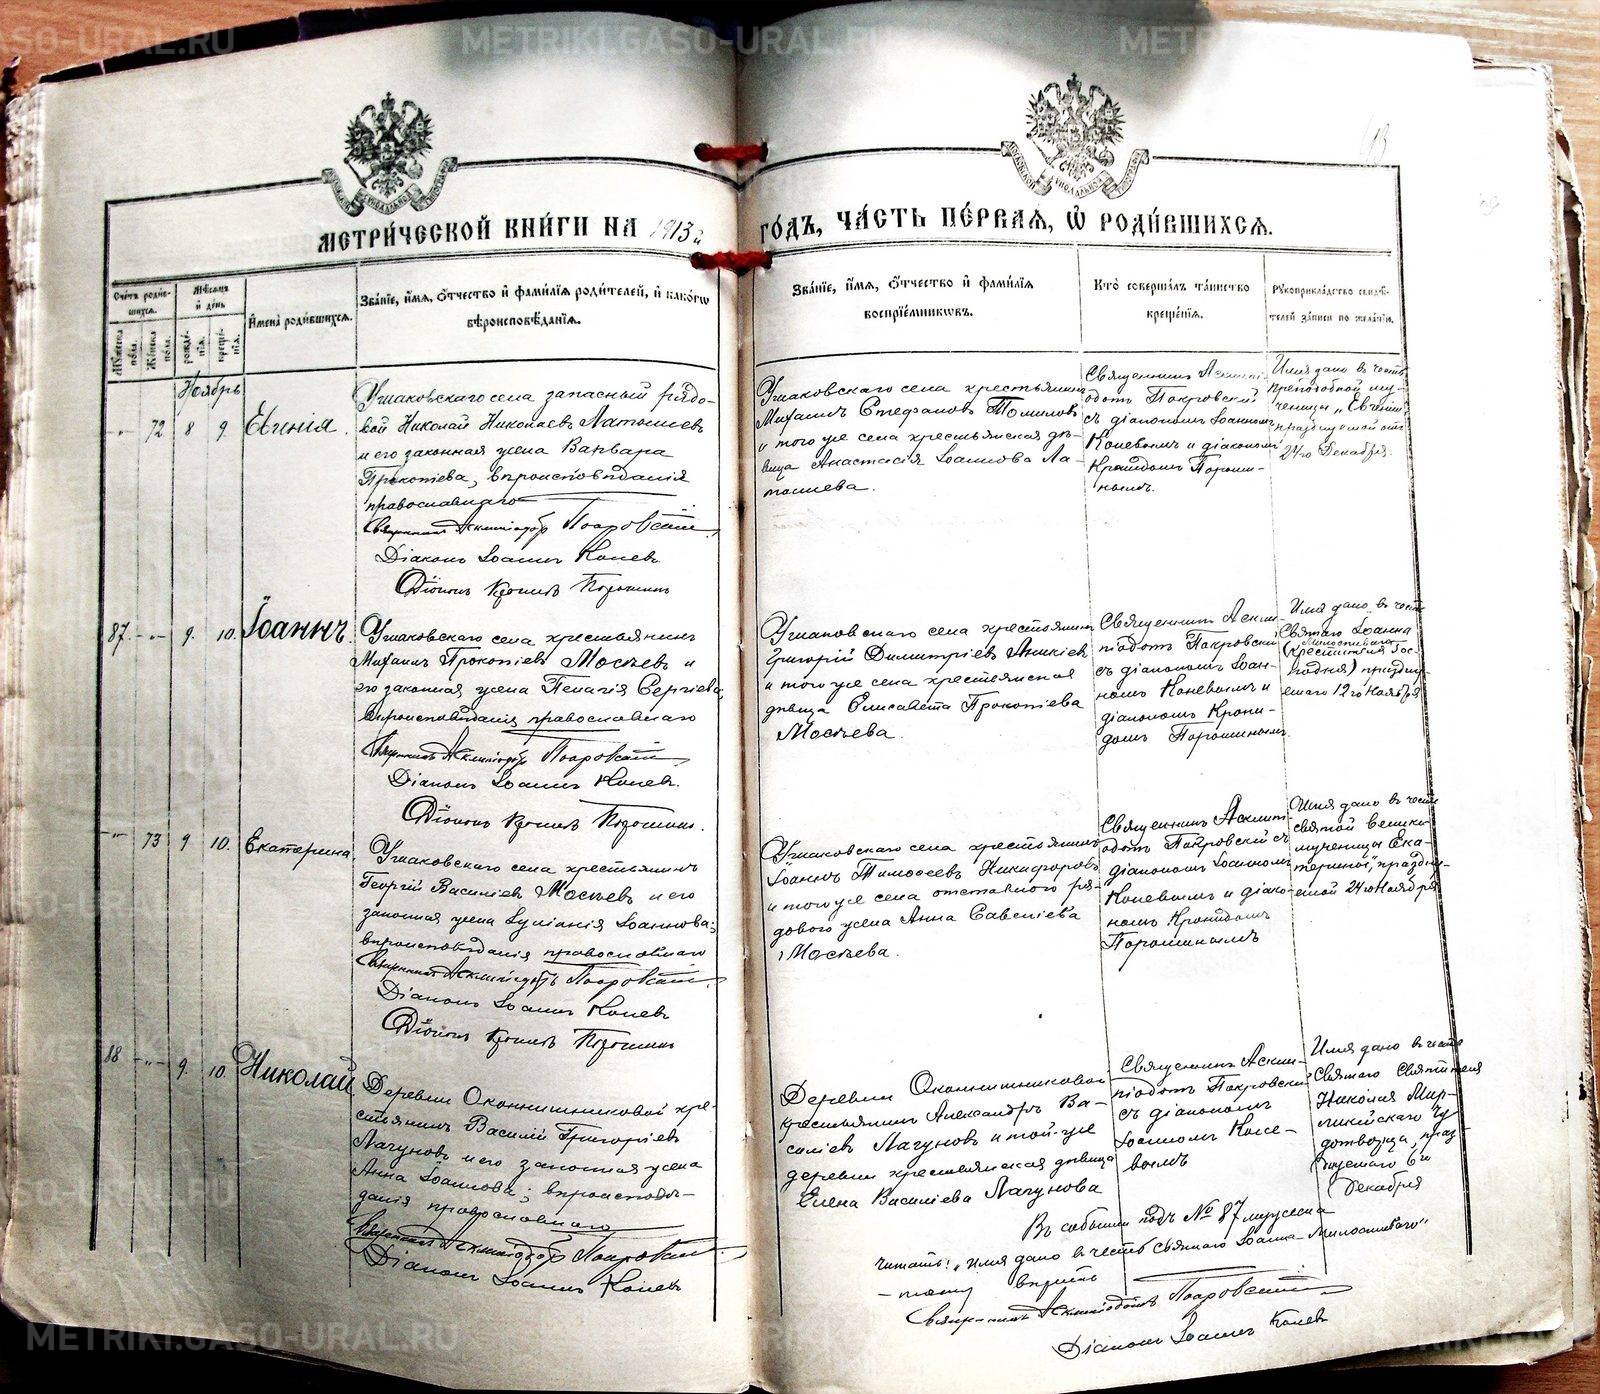 METRIKI.GASO-URAL.RU
METRIKI.GASO-URAL.RU
МЕТРИ́ЧЕСКОЙ КНИ́ГИ НА 1913й
ГО́ДЪ, ЧА́СТЬ ПЕ́РВАѦ, Ѽ РОДИ́ВШИХСѦ.
Сче́тъ роди́в-
шихсѧ.
Мꙋ́жеска по́ла.
Же́нска по́ла.
Мѣ́сѧцъ и҆ де́нь
рожде́-нїѧ.
креще́-нїѧ.
И҆мена̀ роди́вшихсѧ.
Зва́нїе, и҆́мѧ, ѻ҆́тчество и҆ фами́лїѧ роди́телей, и҆ како́гѡ
вѣроисповѣ́данїѧ.
Зва́нїе, и҆́мѧ, ѻ҆́тчество и҆ фами́лїѧ
воспрїе́мникѡвъ.
Кто̀ соверша́лъ та́инство
креще́нїѧ.
Рꙋкоприкла́дство свидѣ́-
телей за́писи по жела́нїю.
Ноябрь
72 8 9. Евгенія.
Ушаковскаго села запасный рядо-
вой Николай Николаевъ Латышевъ
и его законная жена Варвара
Прокопіева, вѣроисповѣданія
православнаго
Священникъ Асклипіодотъ Покровскій
Діаконъ Іоаннъ Коневъ.
Діаконъ Кронидъ Порошинъ
Ушаковскаго села крестьянинъ
Михаилъ Стефановъ Томиловъ
и того же села крестьянская дѣ-
вица Анастасія Іоаннова Ла-
тышева.
Священникъ Асклипі-
одотъ Покровскій
съ діакономъ Іоанномъ
Коневымъ и діакономъ
Кронидомъ Пороши-
нымъ.
Имя дано въ честь
преподобной му-
ченицы „Евгеніи“
празднуемой
24го Декабря.
87. 9. 10. Іоаннъ.
Ушаковскаго села крестьянинъ
Михаилъ Прокопіевъ Мосѣевъ и
его законная жена Пелагія Сергіева,
вѣроисповѣданія православнаго
Священникъ Асклипіодотъ Покровскій
Діаконъ Іоаннъ Коневъ.
Діаконъ Кронидъ Порошинъ.
Ушаковскаго села крестьянинъ
Григорій Димитріевъ Аникіевъ
и того же села крестьянская
дѣвица Елисавета Прокопіева
Мосѣева.
Священникъ Аскли-
піодотъ Покровскій
съ діакономъ Іоан-
номъ Коневымъ и
діакономъ Крони-
домъ Порошинымъ.
Имя дано въ честь
Святаго Іоанна
Милостиваго
(крестителя Гос-
подня) праздну-
емаго 12го Ноября
73 9 10. Екатерина
Ушаковскаго села крестьянинъ
Георгій Василіевъ Мосѣевъ и его
законная жена Іуліанія Іоаннова;
вѣроисповѣданія православнаго
Священникъ Асклипіодотъ Покровскій
Діаконъ Іоаннъ Коневъ
Діаконъ Кронидъ Порошинъ
Ушаковскаго села крестьянинъ
Іоаннъ Тимоѳеевъ Никифоровъ
и того же села отставного ря-
дового жена Анна Савеліева
Мосѣева.
Священникъ Асклипі-
одотъ Покровскій съ
діакономъ Іоанномъ
Коневымъ и діако-
номъ Кронидомъ
Порошинымъ
Имя дано въ честь
святой велико-
мученицы Ека-
терины, праздну-
емой 24го Ноября
88 9. 10. Николай
Деревни Оконнишниковой кре-
стьянинъ Василій Григоріевъ
Лагуновъ и его законная жена
Анна Іоаннова; вѣроисповѣ-
данія православнаго
Священникъ Асклипіодотъ Покровскій
Діаконъ Іоаннъ Коневъ
Деревни Оконнишниковой
крестьянинъ Александръ Ва-
силіевъ Лагуновъ и той-же
деревни крестьянская дѣвица
Елена Василіева Лагунова
Священникъ Аскли-
піодотъ Покровскій
съ діакономъ
Іоанномъ Коне-
вымъ
Имя дано въ честь
Святаго Святителя
Николая Мир-
ликійскаго Чу-
дотворца, праз-
днуемаго 6го
Декабря
Въ событіи подъ № 87
читать: „Имя дано въ честь святаго Іоанна Милостиваго“
вѣрить
Священникъ Асклипіодотъ Покровскій
Діаконъ Іоаннъ Коневъ
METRIKI.GASO-URAL.RU